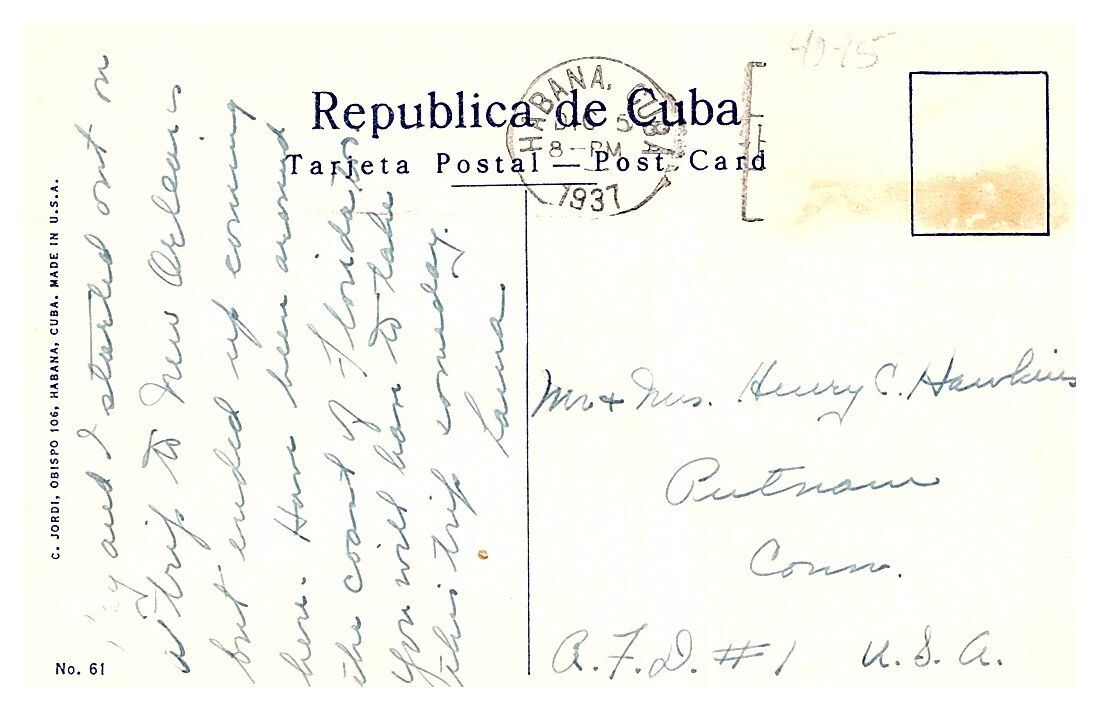 4075
Republica de Cuba
Tarjeta Postal — Post Card
HABANA, CUBA
5
8-PM
1937
C. JORDI, OBISPO 106, HABANA, CUBA. MADE IN U.S.A.
No. 61
and I started out on
a trip to New Orleans
but ended up coming
here. Have been around
the coast of Florida
You will have to take
this trip someday.
Laura.
Mr + Mrs. Henry C. Hawkins
Putnam
Conn.
R.F.D. #1 U.S.A.